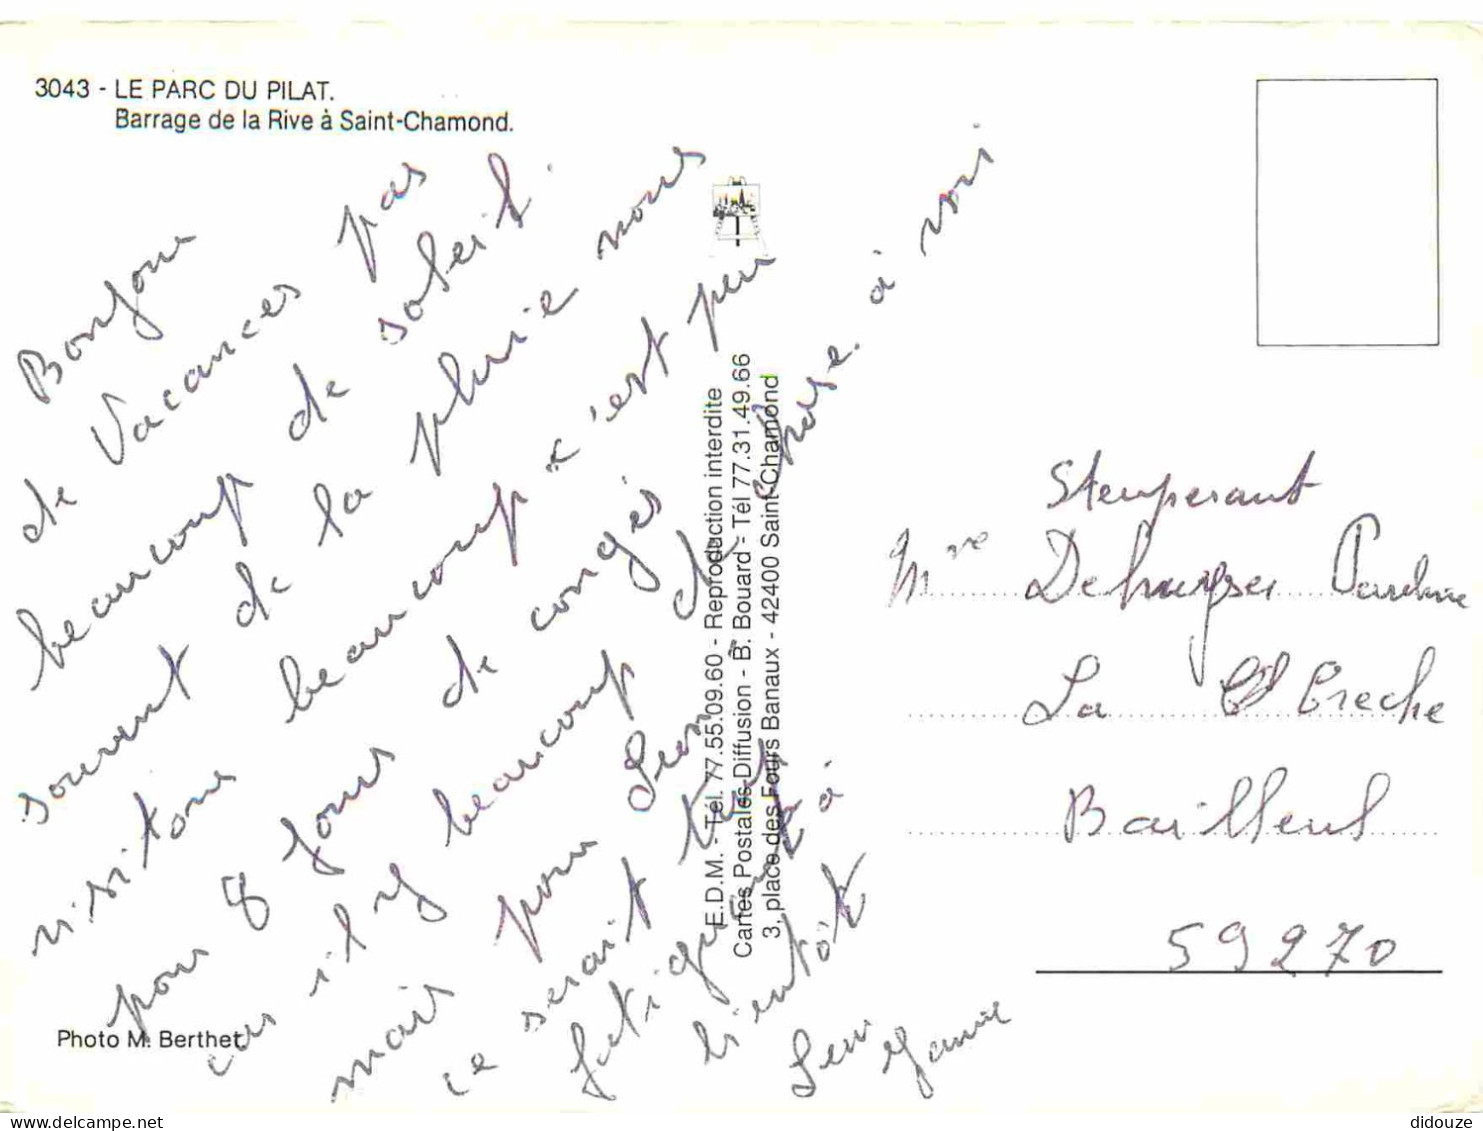 3043 - LE PARC DU PILAT.
Barrage de la Rive à Saint-Chamond.
Bonjour
de Vacances pas
beaucoup de soleil.
souvent de la pluie nous
visitons beaucoup c'est peu
pour 8 jours de congés
car il y beaucoup de chose. à voir
mais pour Leon
ce serait trop
fatiguant à
bientôt
Leon
Jannie
Photo M. Berthet.
E.D.M. - Tél. 77.55.09.60 - Reproduction interdite
Cartes Postales Diffusion - B. Bouard - Tél 77.31.49.66
3, place des Fours Banaux - 42400 Saint-Chamond
Mme
La Creche
Bailleul
59270
didouze